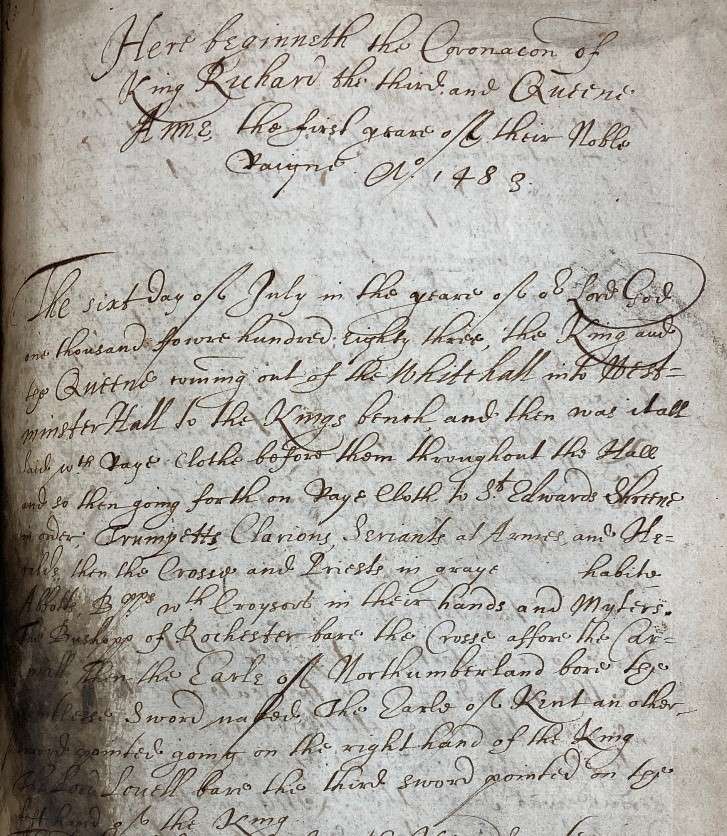 Here beginneth the Coronacon of
King Richard the third and Queene
Anne, the first yeare of their Noble
Raigne. Ao. 1483.
The sixt day of July in the yeare of or Lord God
one thousand fowre hundred Eighty three, the King and
the Queene coming out of the Whitehall into West=
minster Hall to the Kings bench and then was it all
laid wth Raye Clothe before them throughout the Hall,
and so then going forth on Raye Cloth to St Edwards Shreene
in order, Trumpetts, Clarions, Seriants at Armes, and He=
ralds, then the Crosse and Priests in graye habite
Abbotts Bpps wth Croysors in their hands and Myters.
The Bushopp of Rochester bare the Crosse affore the Car=
then the Earle of Northumberland bore the
Sword naked The Earle of Kent an other
sword pointed going on the right hand of the King
The Lord Lovell bare the third sword pointed on the
left hand of the King.